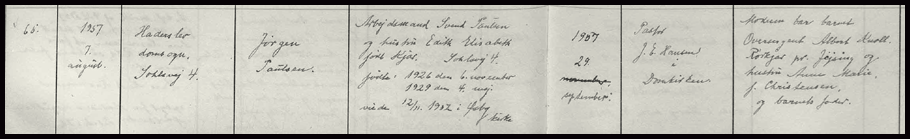 65.
1957
7.
august.
Haderslev
domsogn.
Sohlsvej 4.
Jørgen
Paulsen.
Arbejdsmand Svend Paulsen
og hustru Edith Elisabeth
født Kjær. Sohlsvej 4.
født: 1926 den 6. november
1929 den 4. maj
viede 12/11. 1952 i Øsby
kirke
1957
29.
november.
september.
Pastor
J. E. Hansen
i
Domkirken
Moderen bar barnet
Oversergent Albert Knoll.
Rørkjær pr. Jejsing og
hustru Anne Marie,
f. Christensen,
og barnets fader.